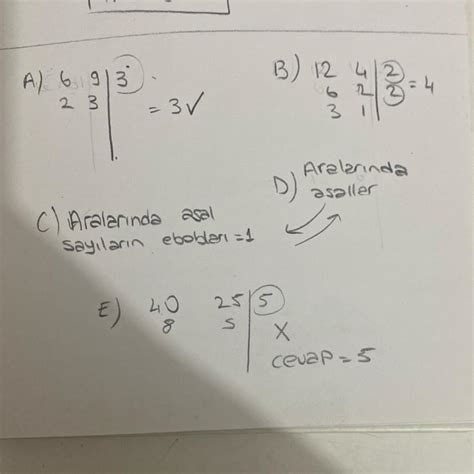 A) 6 9 | 3
2 3 | = 3 ✓
B) 12 4 | 2
6 2 | 2 = 4
3 1 |
C) Aralarında asal
sayıların ebobları = 1
D) Aralarında
asallar
E) 40 25 | 5
8 5 | X
cevap = 5